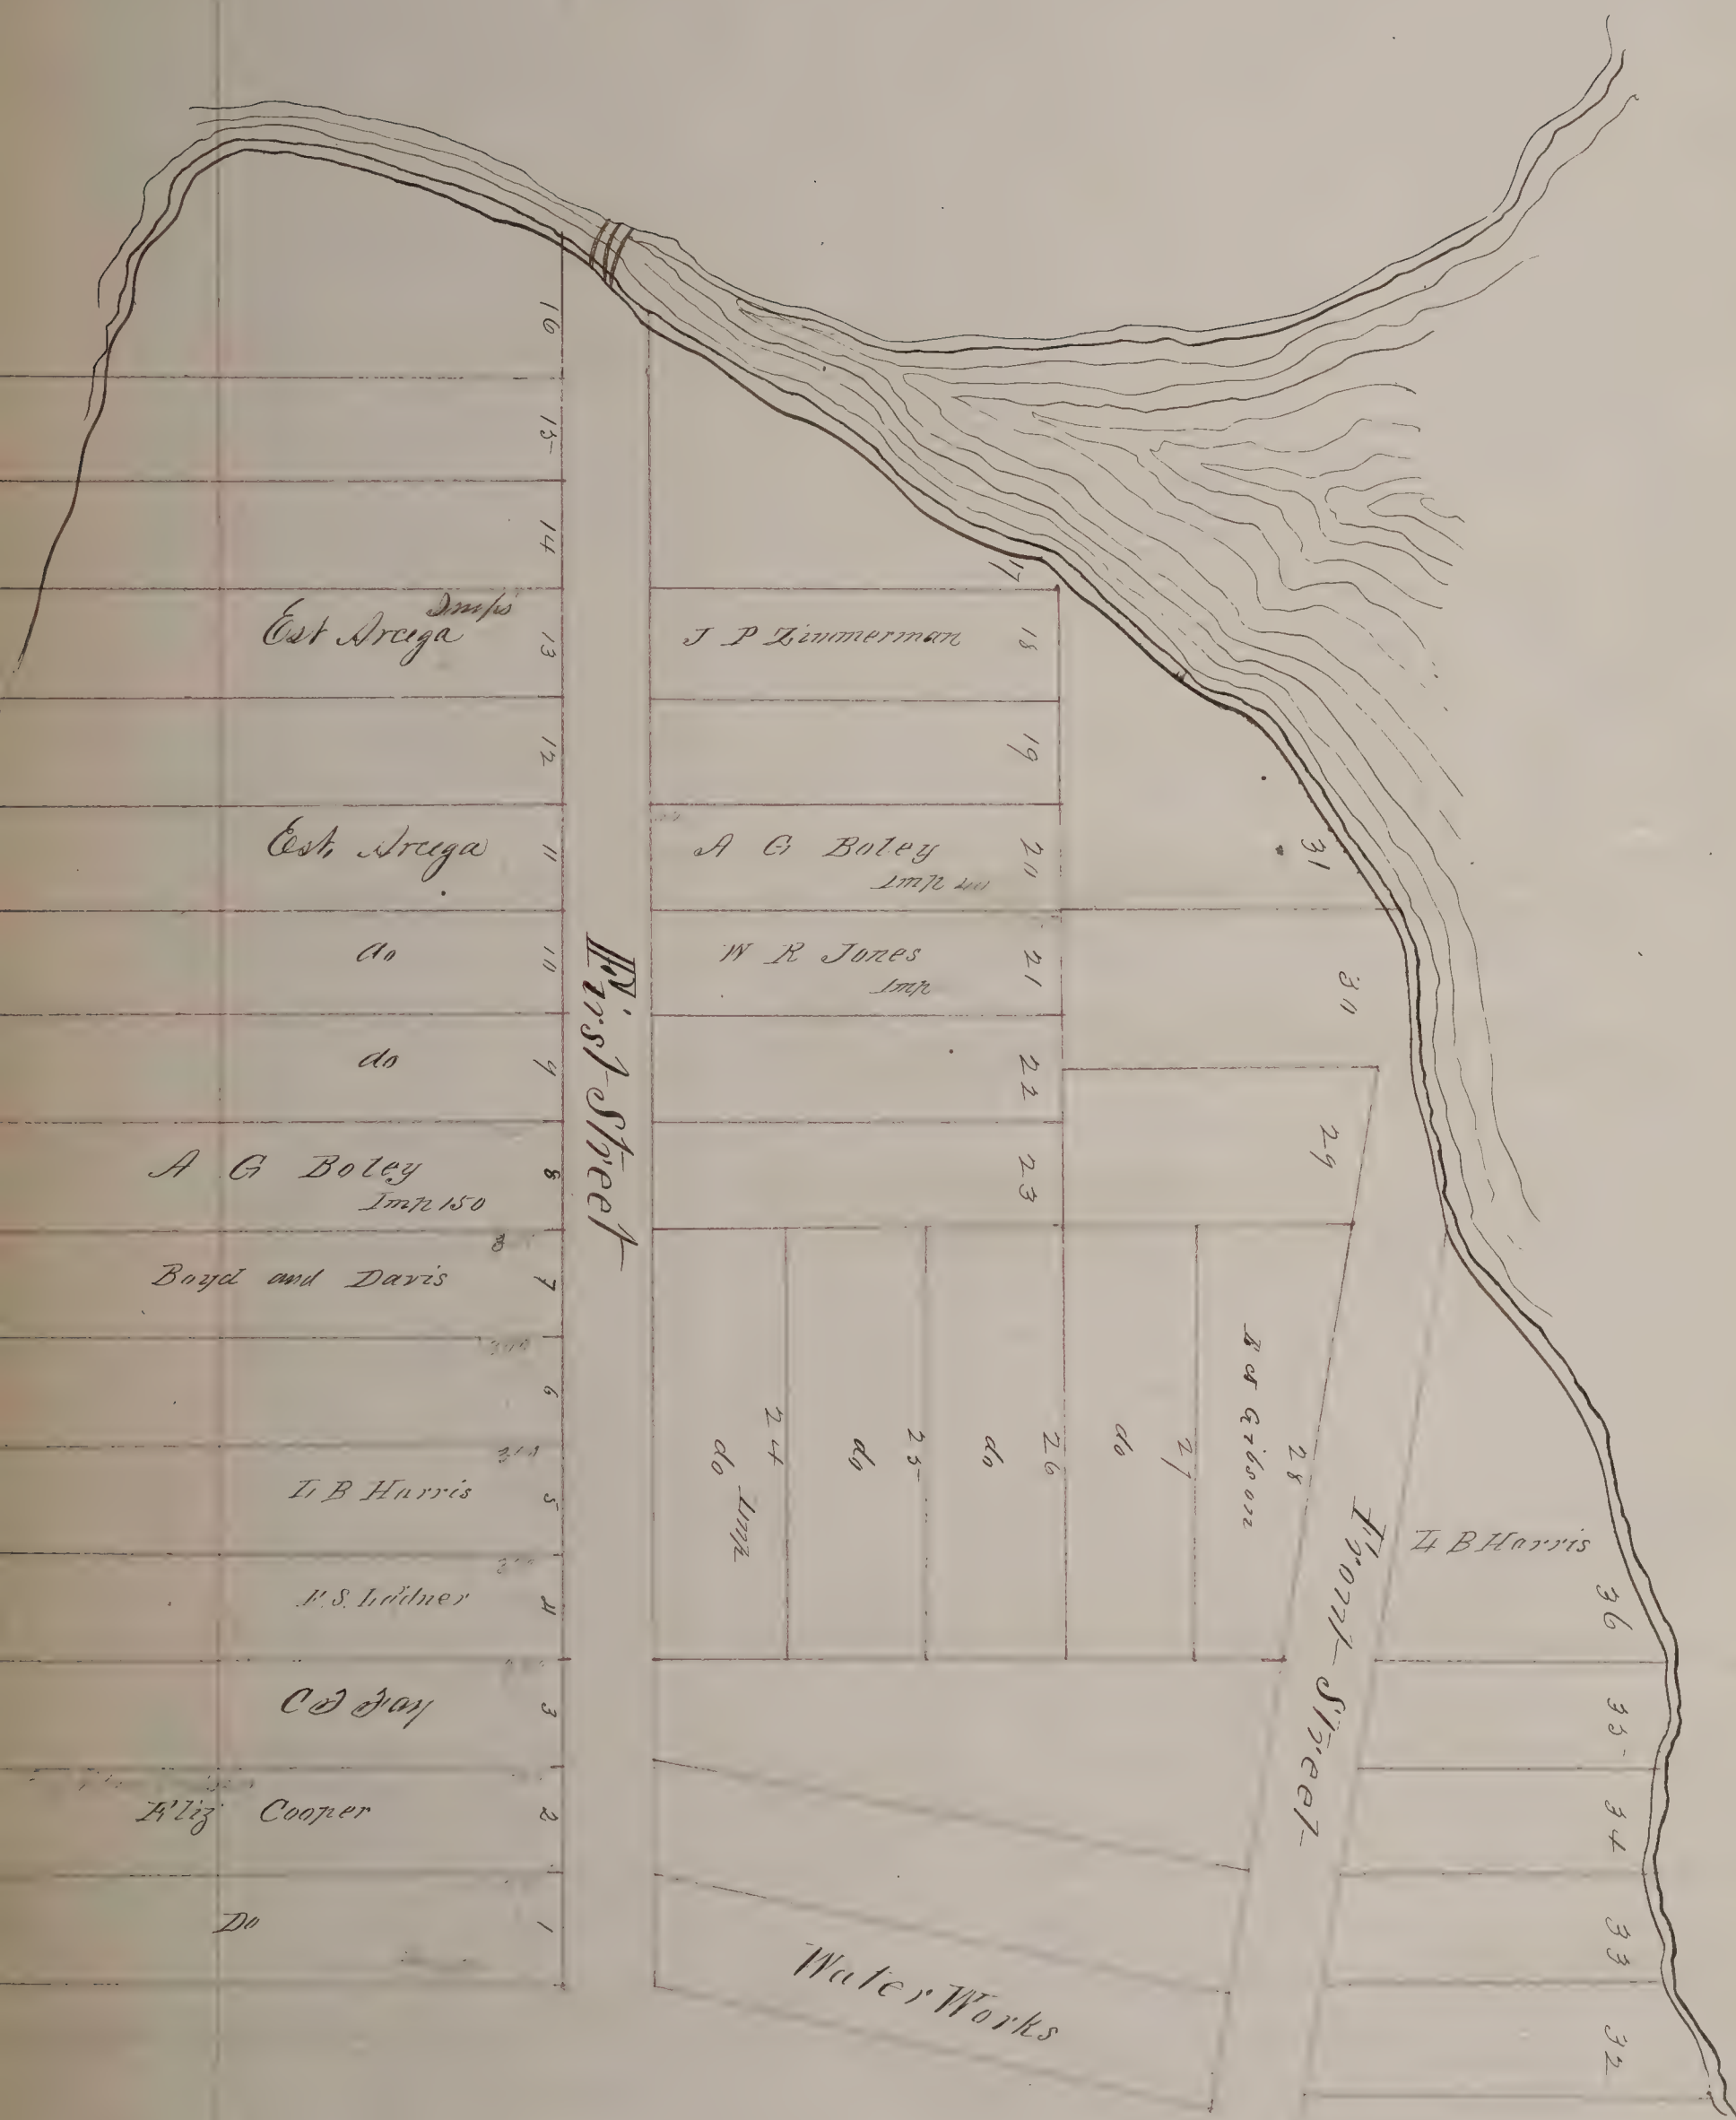 16
15
14
Est Arcega Imps
13
12
Est. Arcega
11
do
10
do
9
A G Boley
Imp 150
8
Boyd and Davis
7
6
L B Harris
5
4
3
Eliz Cooper
2
Do
1
First Street
17
J P Zimmerman
18
19
A G Boley
Imp
20
W R Jones
Imp
21
22
23
24
do Imp
25
do
26
do
27
do
28
Gibson
29
30
31
Front Street
L B Harris
36
35
34
33
32
Water Works